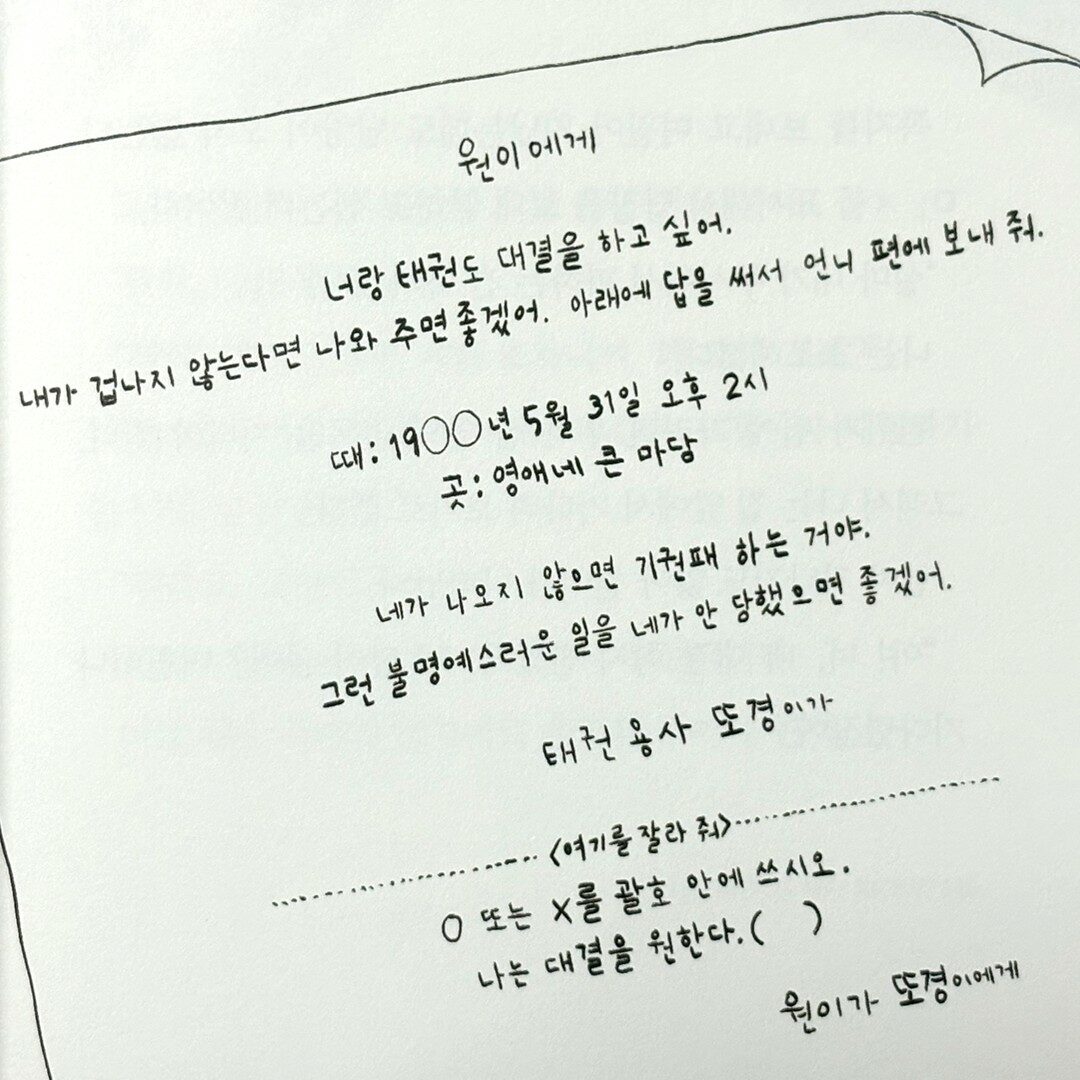 원이에게
너랑 태권도 대결을 하고 싶어.
내가 겁나지 않는다면 나와 주면 좋겠어. 아래에 답을 써서 언니 편에 보내 줘.
때: 19○○년 5월 31일 오후 2시
곳: 영애네 큰 마당
네가 나오지 않으면 기권패 하는 거야.
그런 불명예스러운 일을 네가 안 당했으면 좋겠어.
태권 용사 또경이가
<여기를 잘라 줘>
O 또는 X를 괄호 안에 쓰시오.
나는 대결을 원한다.( )
원이가 또경이에게